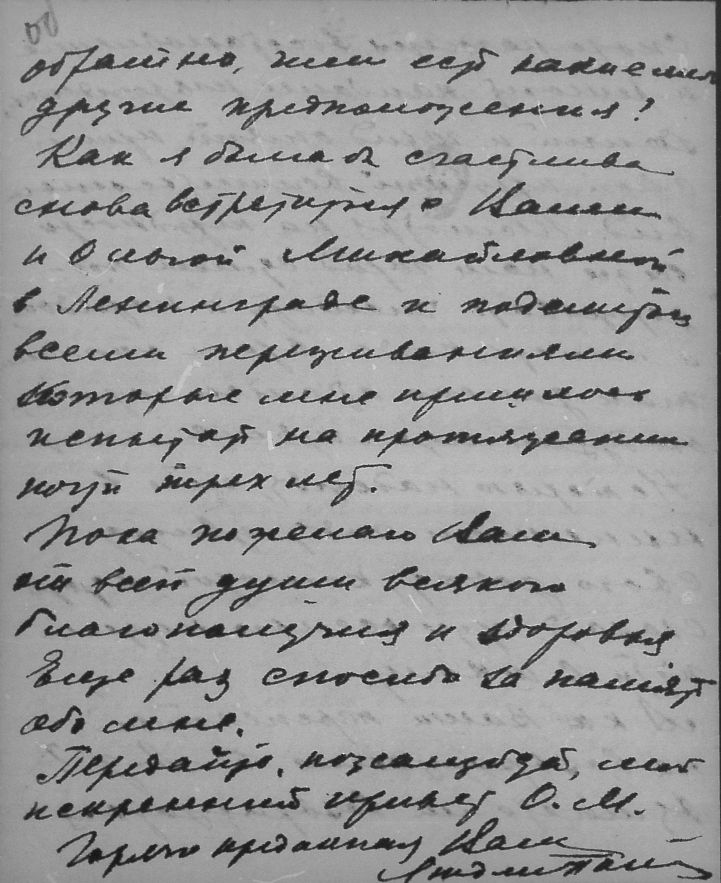 обратно, или есть какие либо
другие предположения?
Как я была бы счастлива
снова встретиться с Вами
и Ольгой Михайловной
в Ленинграде и поделиться
всеми переживаниями
которые мне пришлось
испытать на протяжении
почти трех лет.
Пока пожелаю Вам
от всей души всякого
благополучия и здоровья
Еще раз спасибо за память
обо мне.
Передайте, пожалуйста, мой
искренний привет О. М.
Горячо преданная Вам